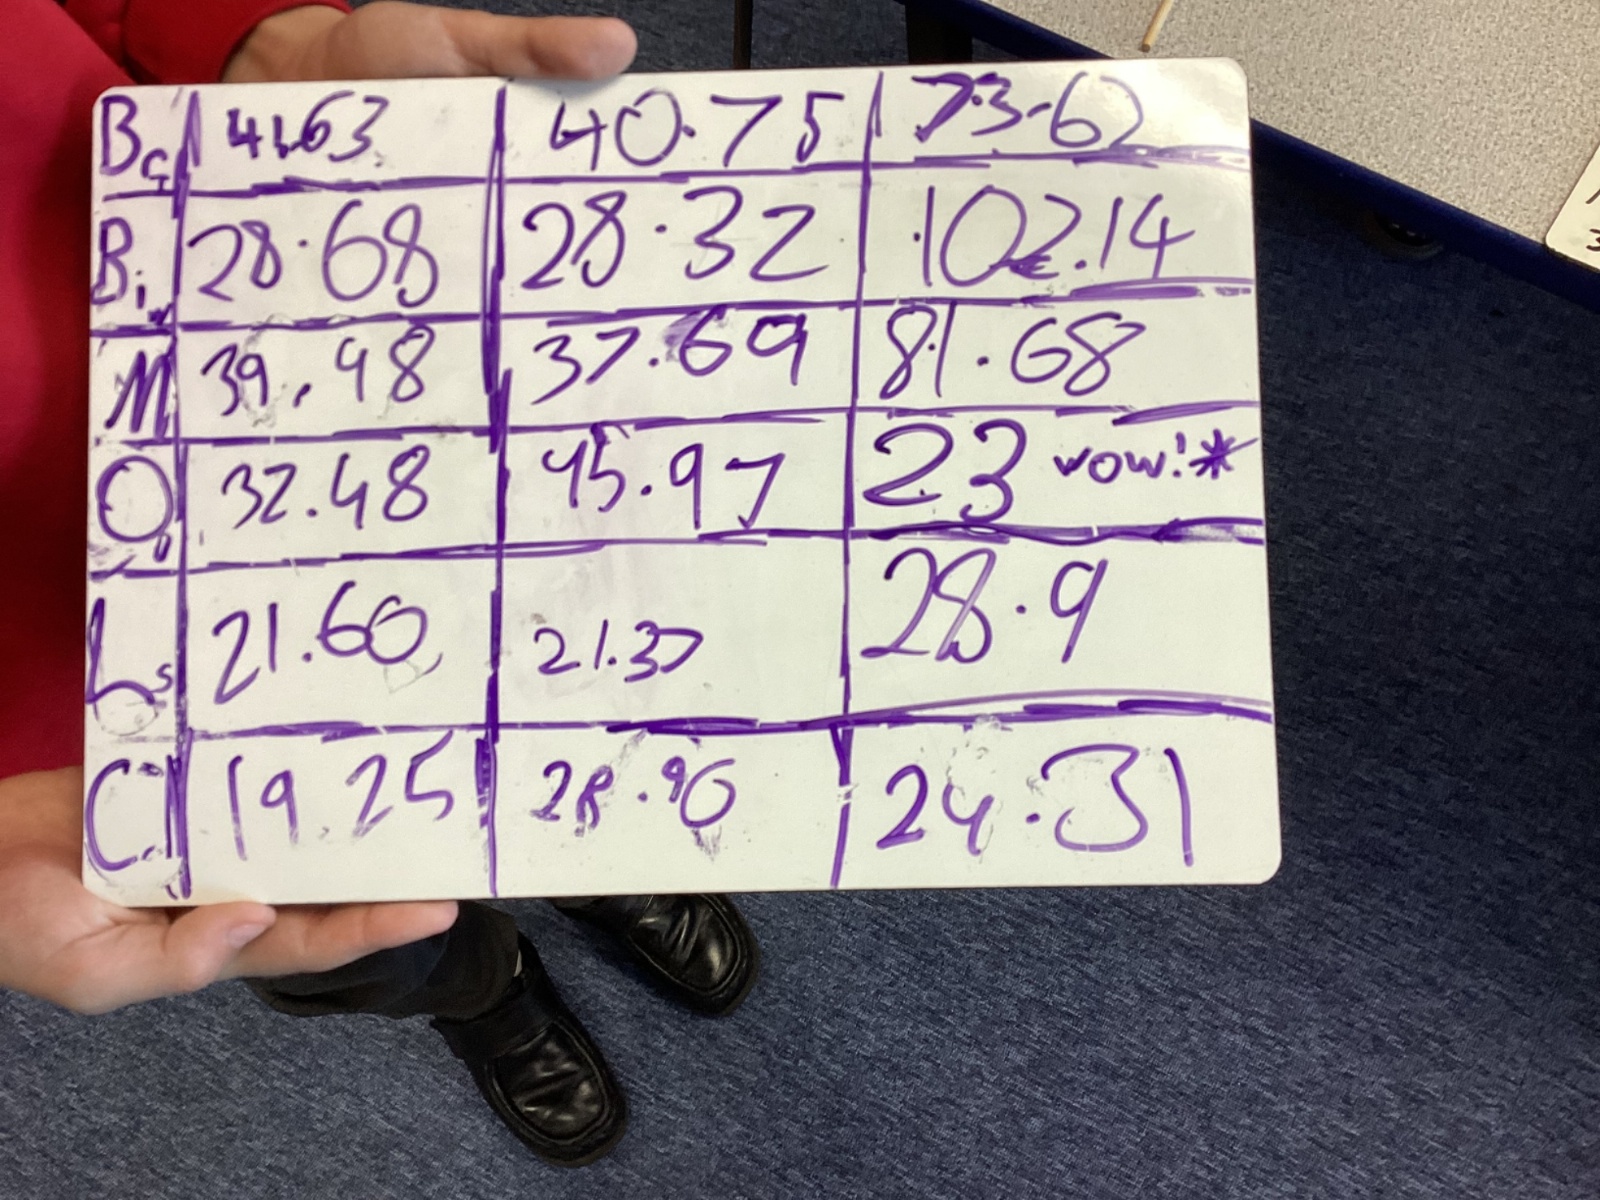 BG 41.63 40.75 73.62
Bi 28.68 28.32 102.14
M 39.98 37.69 81.68
O 32.48 45.97 23 wow!*
Ls 21.60 21.37 28.9
C. 19.25 28.90 24.31